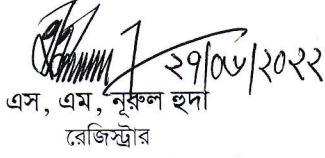 ২৭/০৬/২০২২
এস, এম, নূরুল হুদা
রেজিস্ট্রার